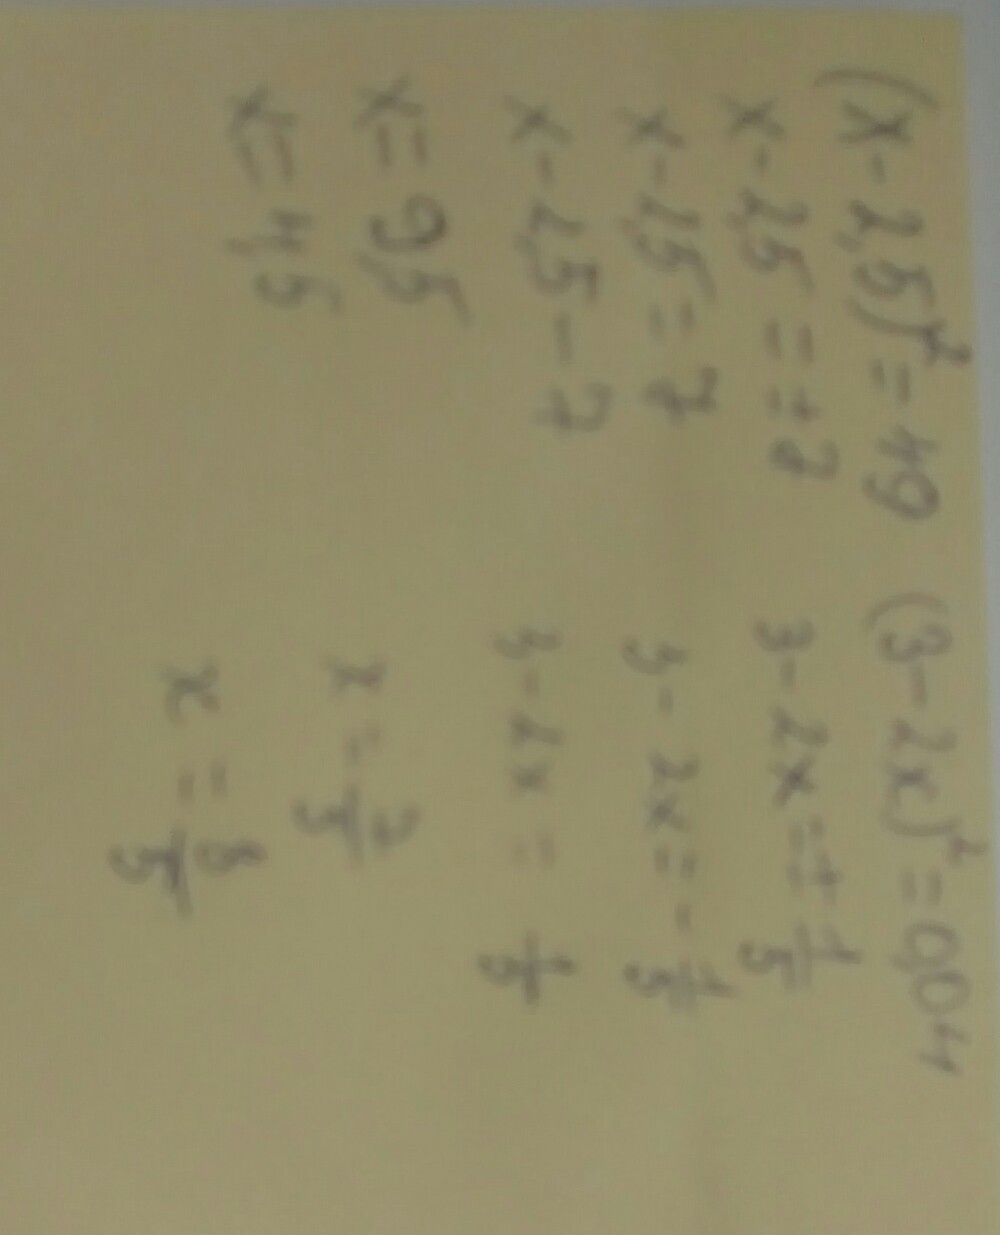 (x-2,5)²=49
x-2,5=±7
x-2,5=7
x-2,5-7
x=9,5
x=4,5
(3-2x)²=0,04
3-2x=±1/5
3-2x=-1/5
3-2x=1/5
x=
x=8/5